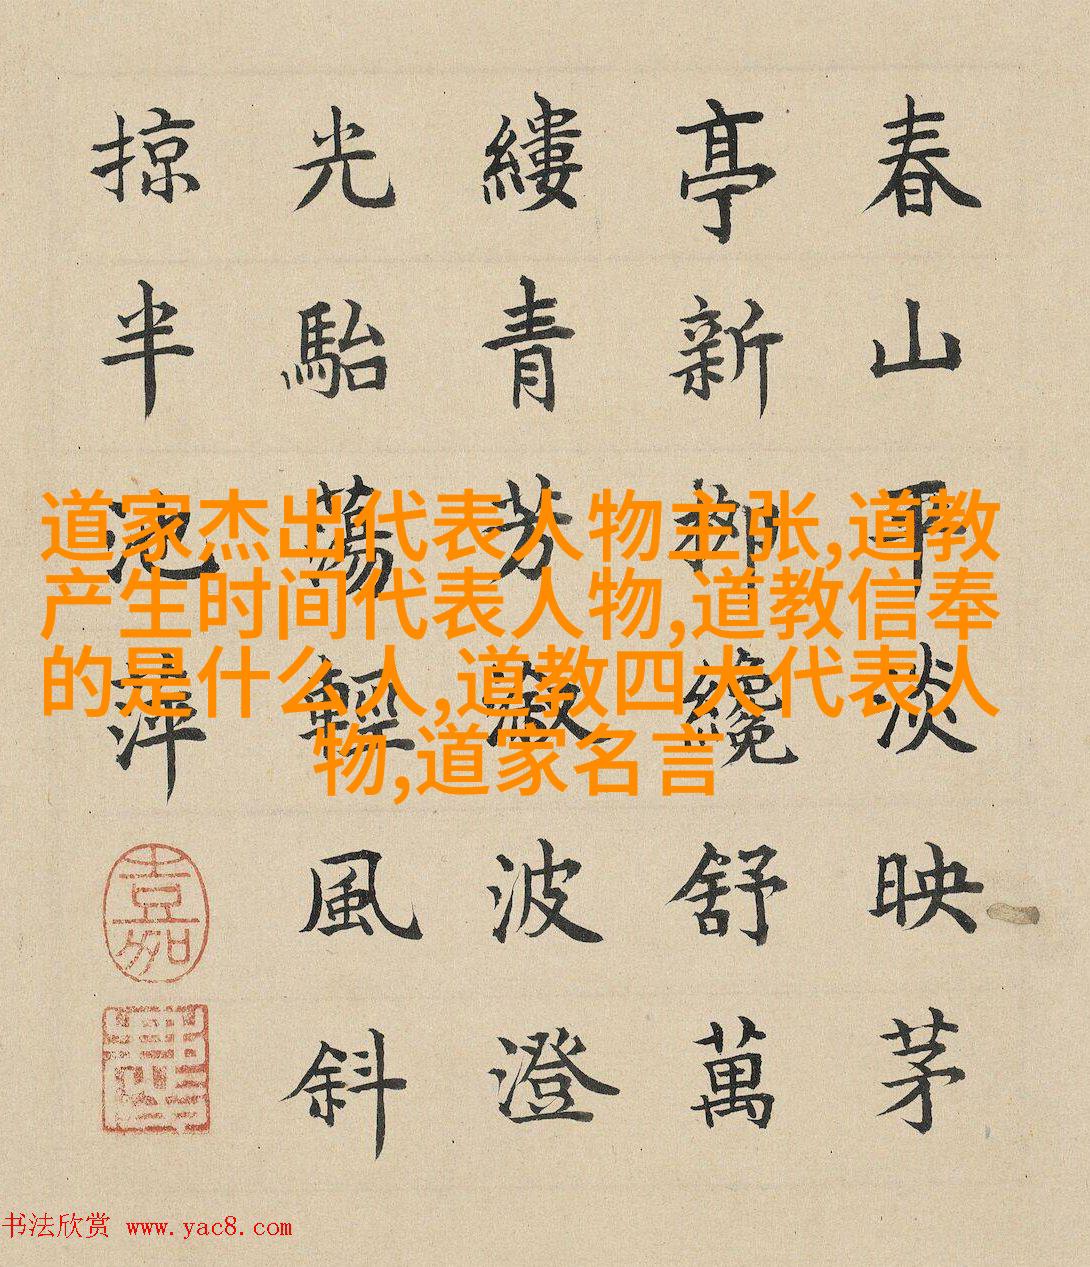 春山平淡映茅
亭新柳纔舒萬
縷青芳波澄
光駘蕩輕風斜
掠半池萍
道家杰出代表人物主张,道教
产生时间代表人物,道教信奉
的是什么人,道教四大代表人
物,道家名言
书法欣赏 www.yac8.com